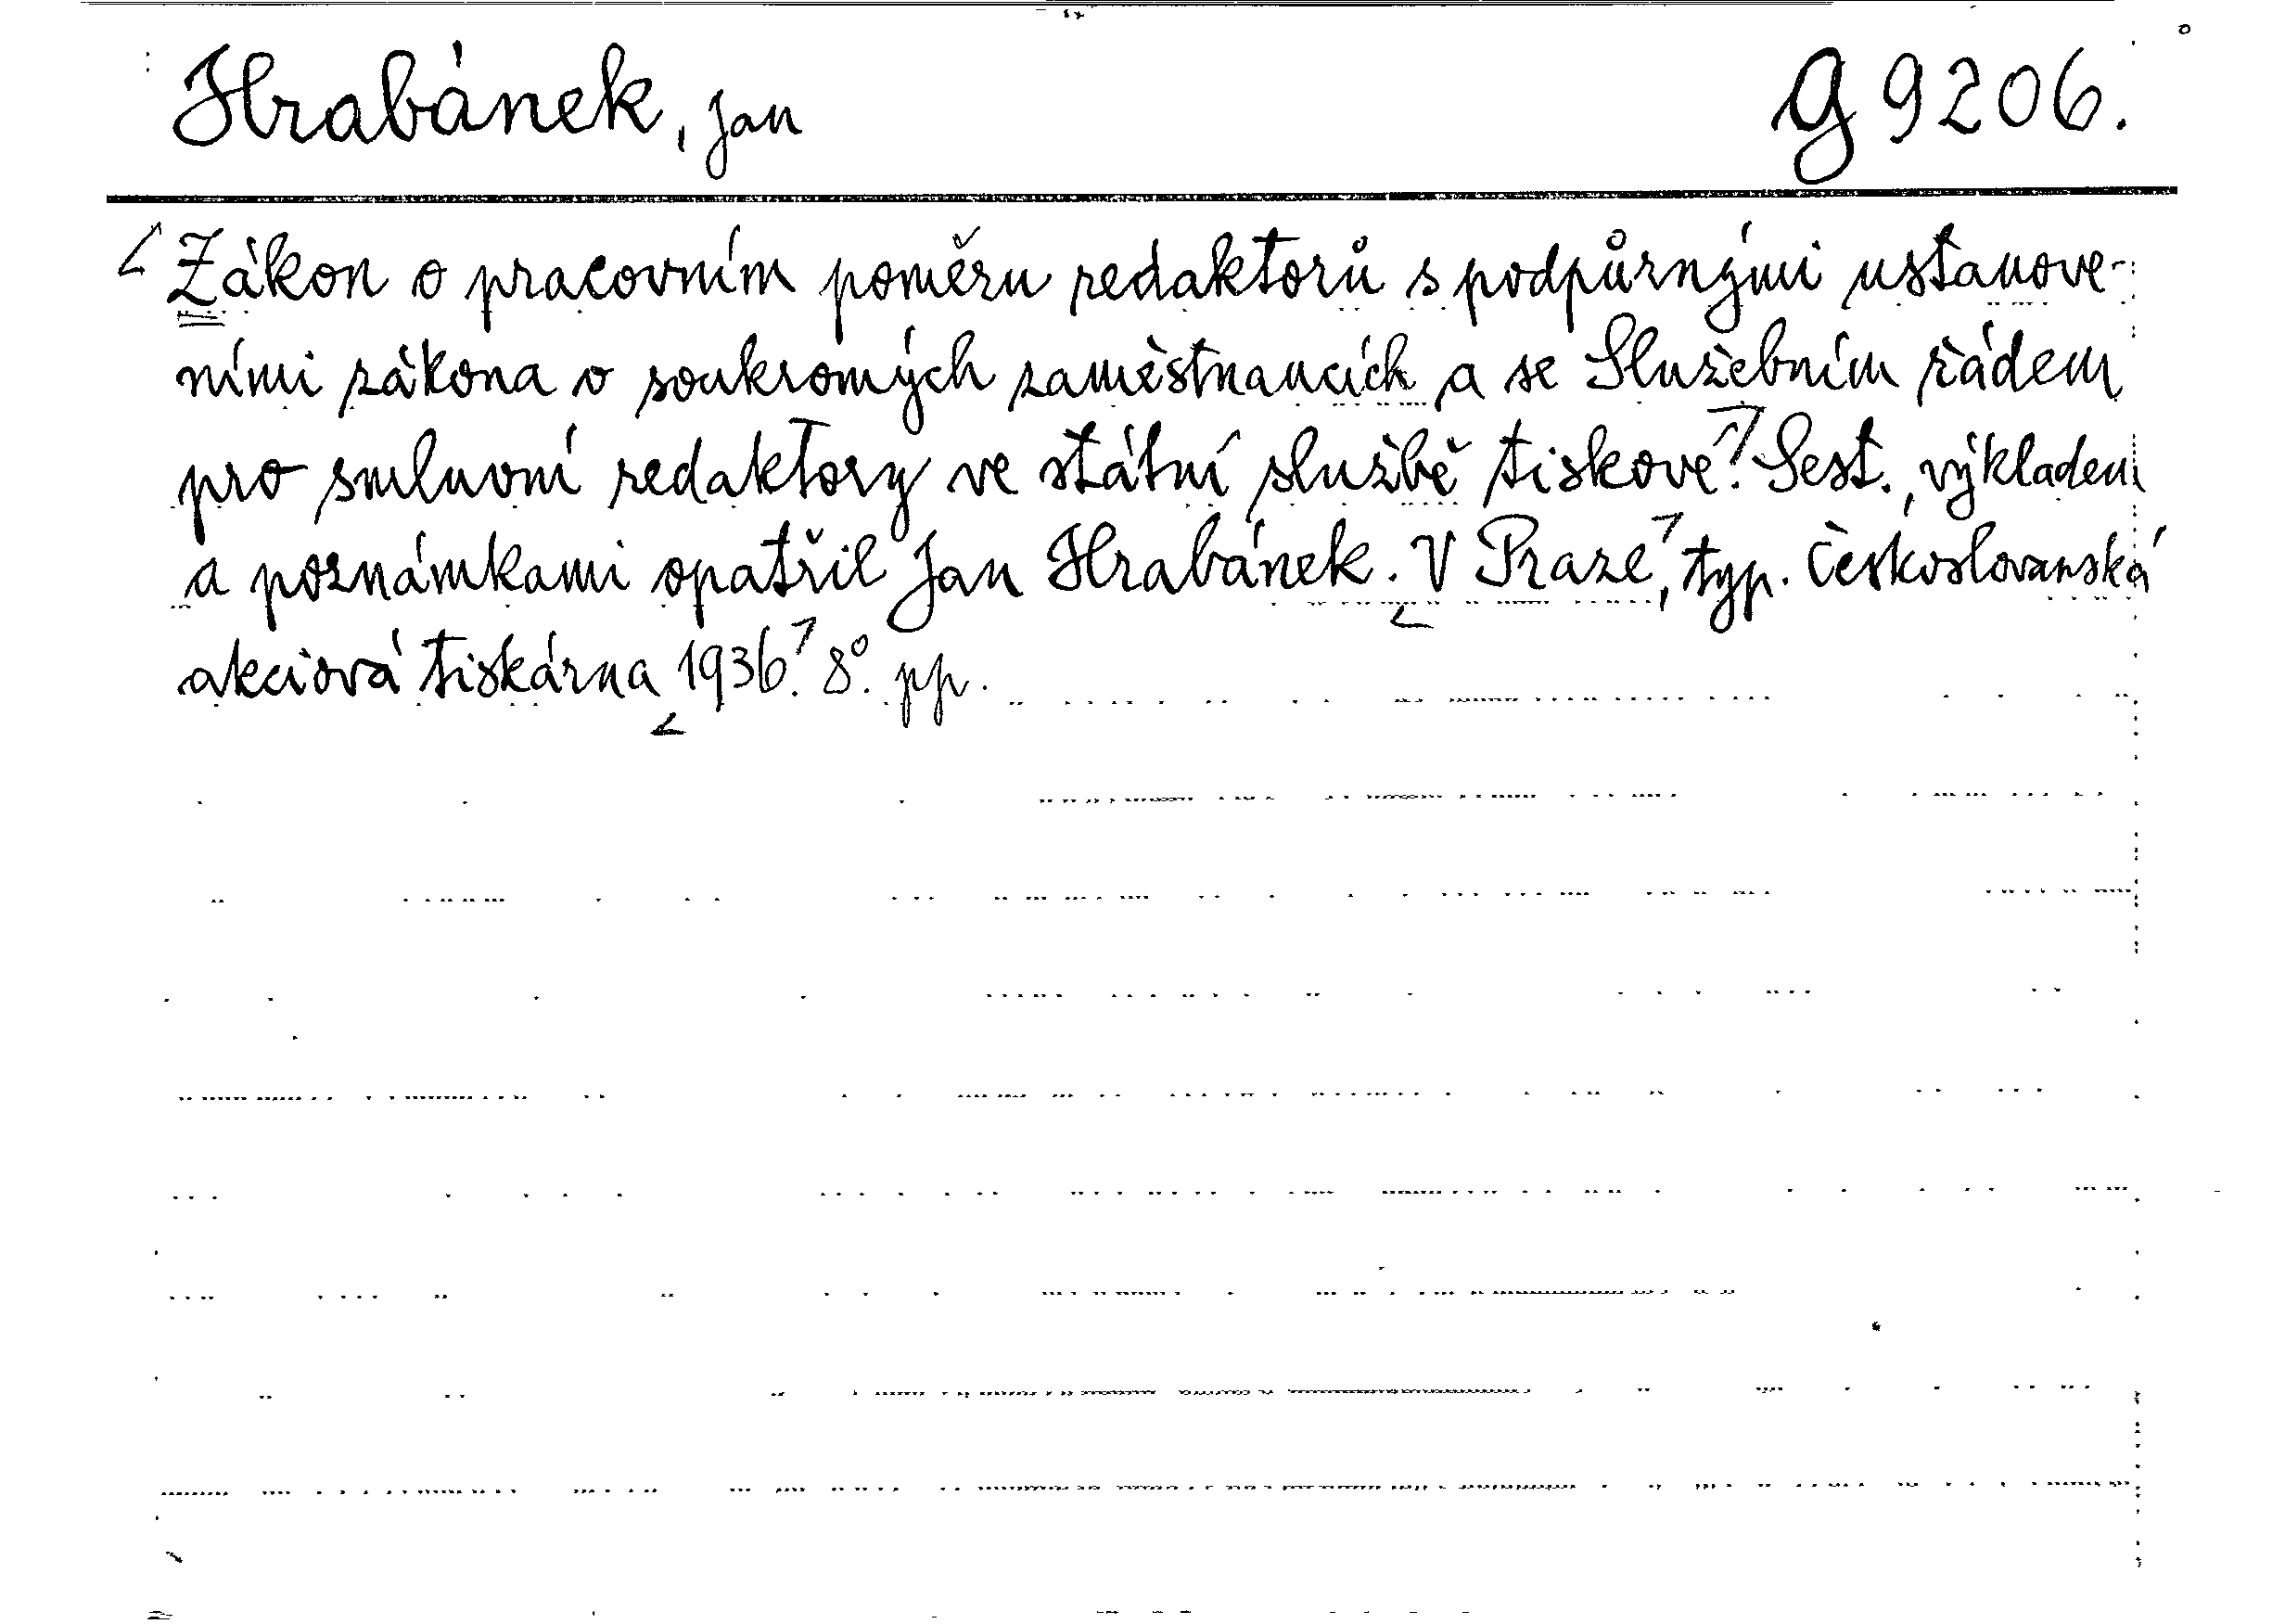 Hrabánek, Jan G 9206.
Zákon o pracovním poměru redaktorů s podpůrnými ustanove-
ními zákona o soukromých zaměstnancích a se Služebním řádem
pro smluvní redaktory ve státní službě tiskové. Sest., výkladem
a poznámkami opatřil Jan Hrabánek. V Praze, typ. Českoslovanská
akciová tiskárna 1936. 8°. pp.